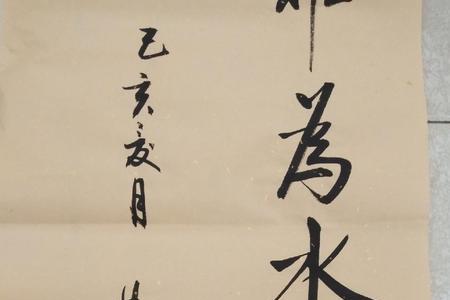 為水
己亥夏月